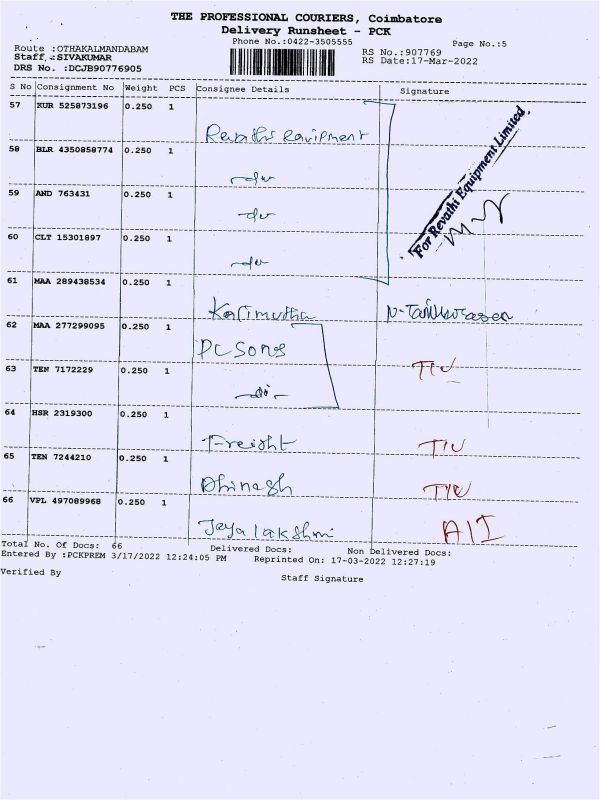 THE PROFESSIONAL COURIERS, Coimbatore
Delivery Runsheet - PCK
Phone No.:0422-3505555
Page No.:5
Route :OTHAKALMANDABAM
RS No.:907769
Staff :SIVAKUMAR
RS Date:17-Mar-2022
DRS No. :DCJB90776905
S No Consignment No Weight PCS Consignee Details Signature
57 KUR 525873196 0.250 1
Revathi Equipment
For Revathi Equipment Limited
58 BLR 4350858774 0.250 1
-do-
59 AND 763431 0.250 1
-do-
60 CLT 15301897 0.250 1
-do-
61 MAA 289438534 0.250 1
Karimutha
62 MAA 277299095 0.250 1
PC Sons
63 TEN 7172229 0.250 1
-do-
64 HSR 2319300 0.250 1
Freight
65 TEN 7244210 0.250 1
Dhinesh
66 VPL 497089968 0.250 1
Jayalakshmi
Total No. Of Docs: 66 Delivered Docs: Non Delivered Docs:
Entered By :PCKPREM 3/17/2022 12:24:05 PM Reprinted On: 17-03-2022 12:27:19
Verified By
Staff Signature